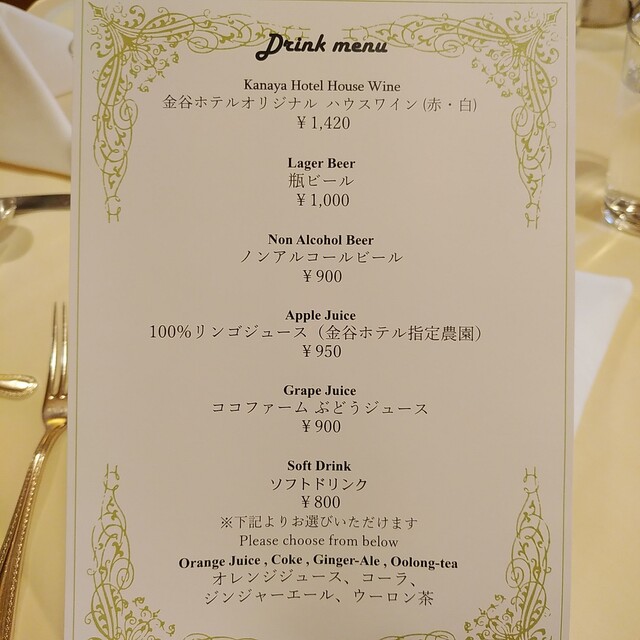 Drink menu
Kanaya Hotel House Wine
金谷ホテルオリジナル ハウスワイン(赤・白)
¥1,420
Lager Beer
瓶ビール
¥1,000
Non Alcohol Beer
ノンアルコールビール
¥900
Apple Juice
100%リンゴジュース（金谷ホテル指定農園）
¥950
Grape Juice
ココファーム ぶどうジュース
¥900
Soft Drink
ソフトドリンク
¥800
※下記よりお選びいただけます
Please choose from below
Orange Juice , Coke , Ginger-Ale , Oolong-tea
オレンジジュース、コーラ、
ジンジャーエール、ウーロン茶